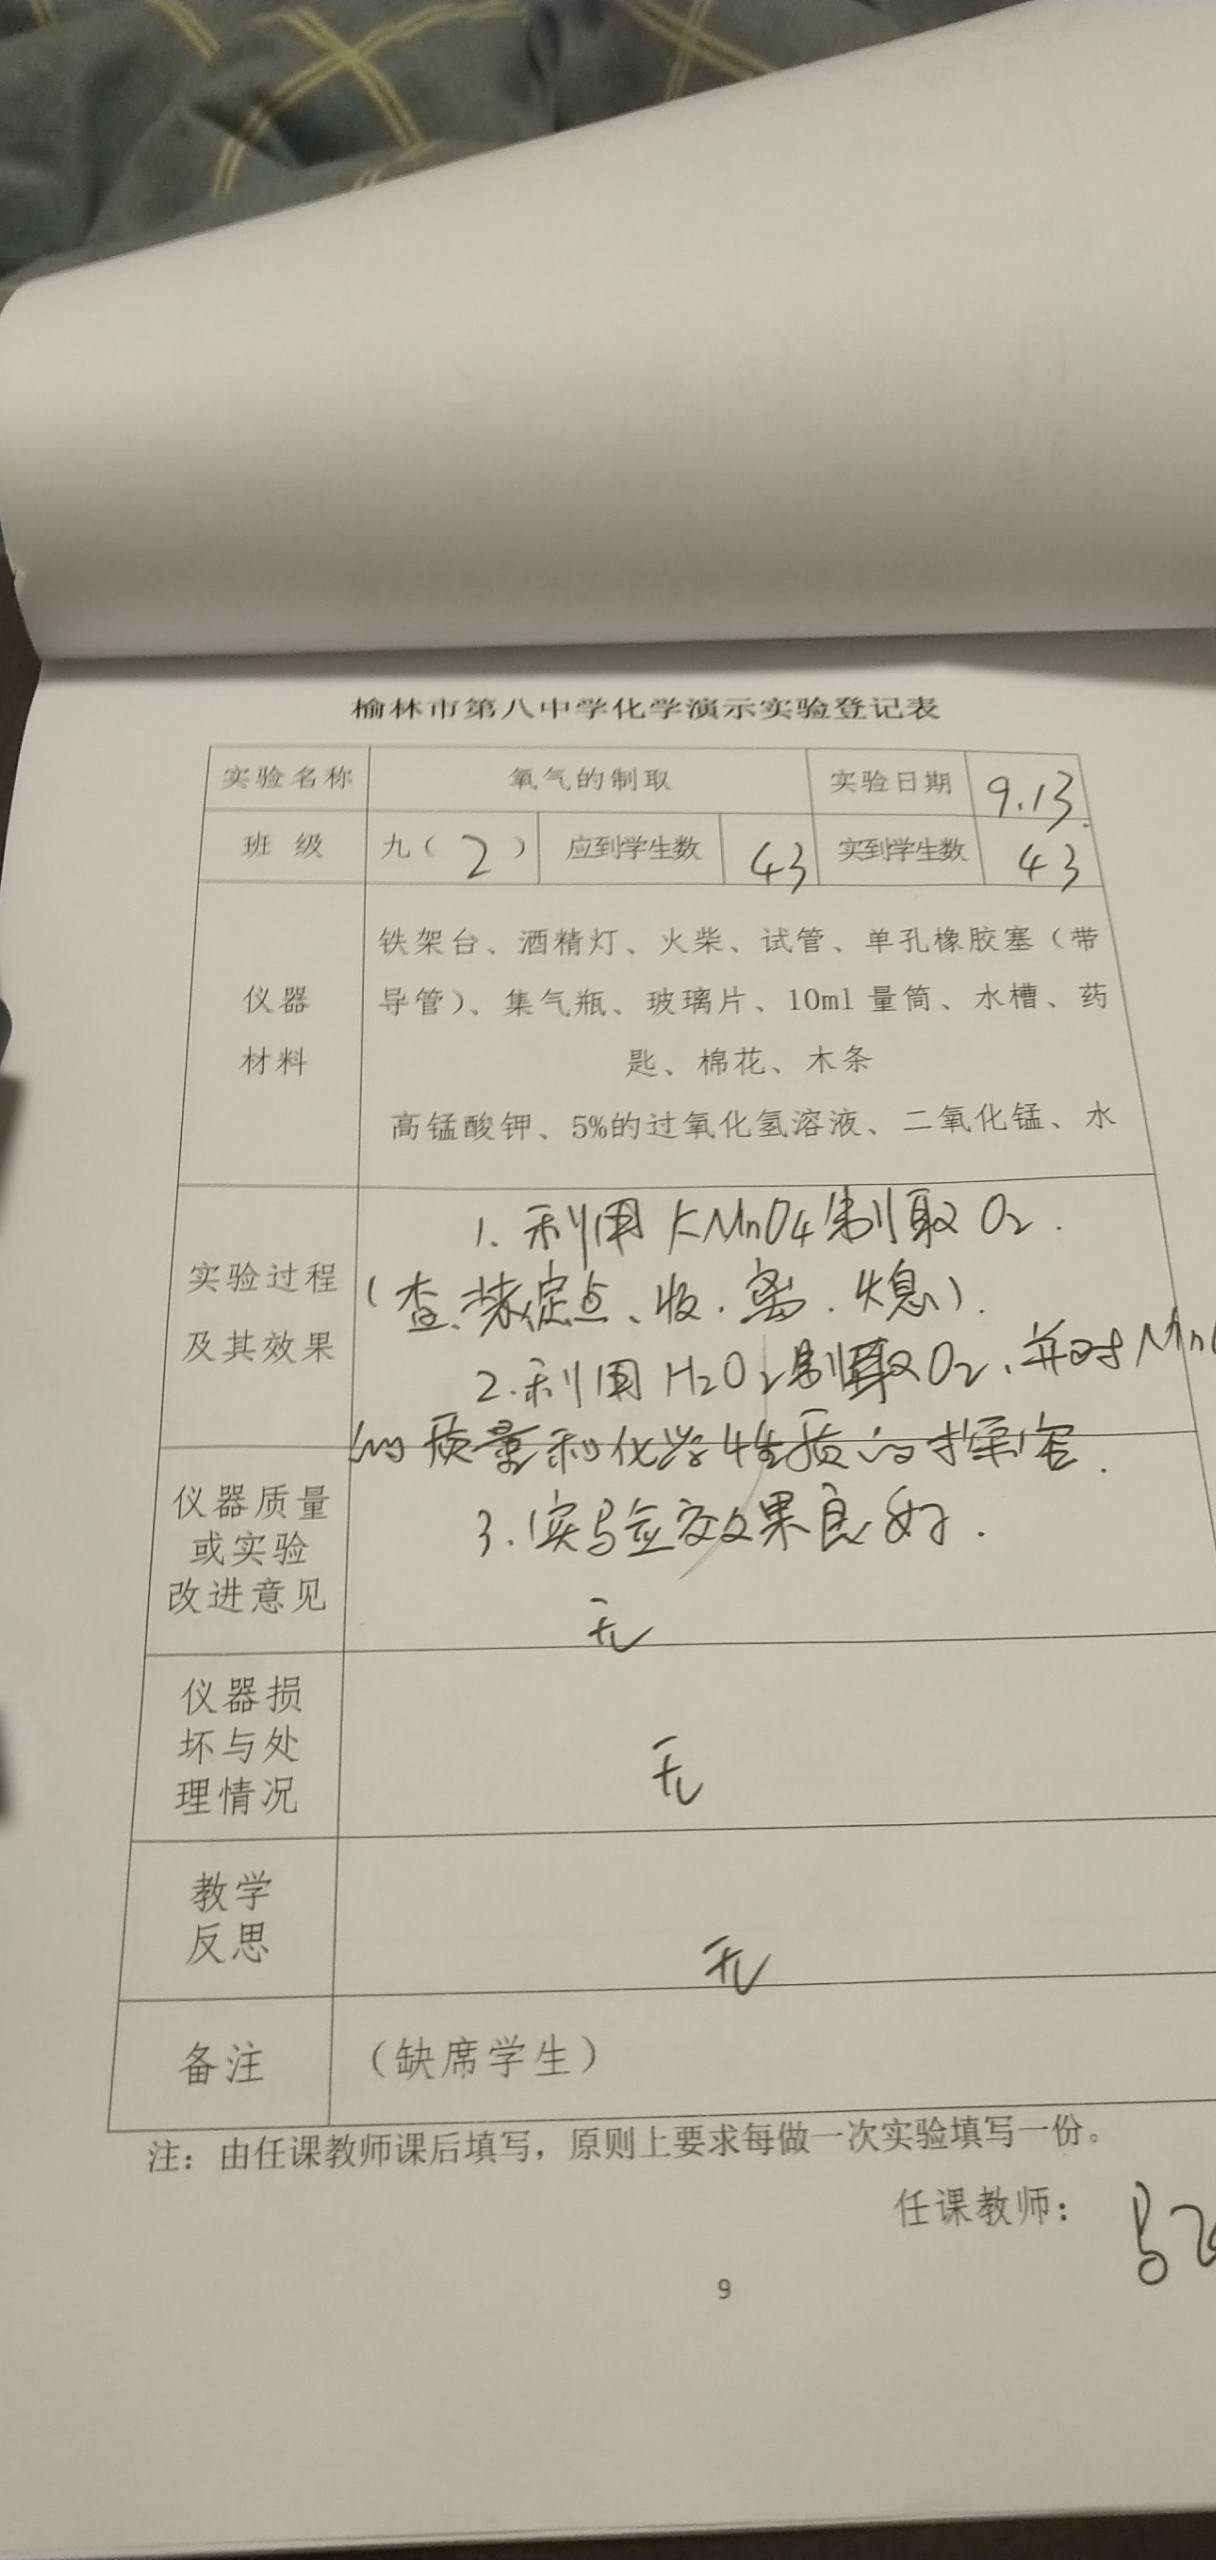 榆林市第八中学化学演示实验登记表
实验名称 氧气的制取 实验日期 9.13.
班 级 九（2） 应到学生数 43 实到学生数 43
仪器
材料
铁架台、酒精灯、火柴、试管、单孔橡胶塞（带
导管）、集气瓶、玻璃片、10ml 量筒、水槽、药
匙、棉花、木条
高锰酸钾、5%的过氧化氢溶液、二氧化锰、水
实验过程
及其效果
1. 利用 KMnO4 制取 O2.
(查、装、定、点、收、离、熄).
2. 利用 H2O2 制取 O2、并对 Mn
的质量和化学性质的探究.
3. 实验效果良好.
仪器质量
或实验
改进意见
无
仪器损
坏与处
理情况
无
教学
反思
无
备注 （缺席学生）
注：由任课教师课后填写，原则上要求每做一次实验填写一份。
任课教师：
9